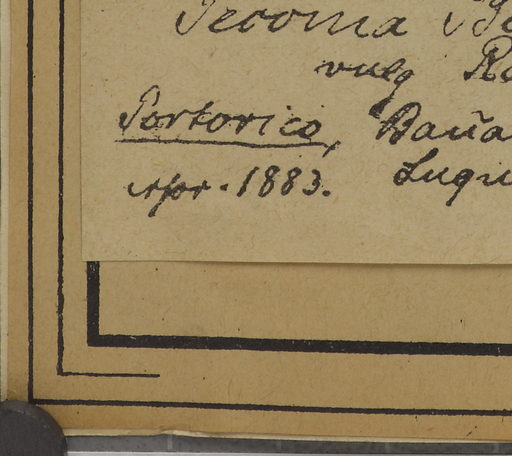 Tecoma
vulg
Portorico, Baña
Apr. 1883. Luqu